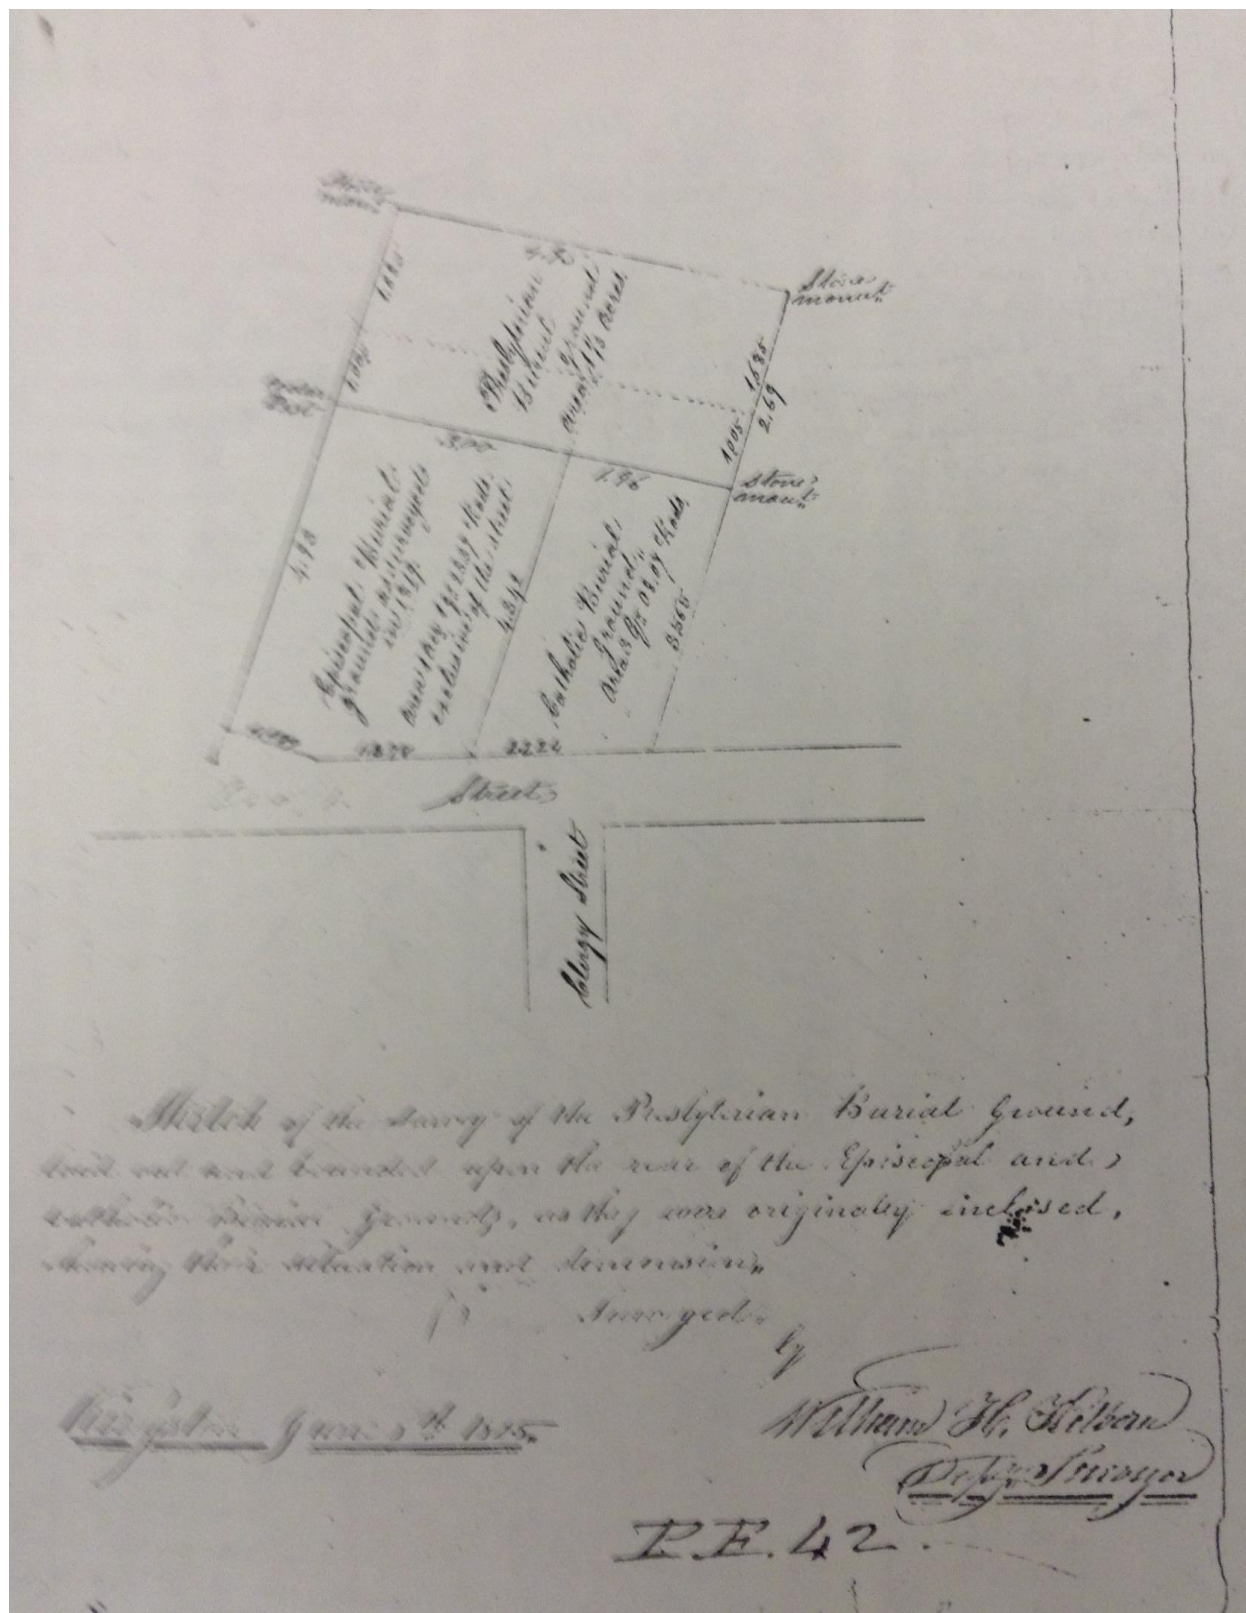 Stone
monut
4.90
1.685
Presbyterian
Burial
ground
area 1 3/10 acres
Stone
monut
1.685
2.69
1.005
1.005
Cedar
Post
3.00
1.96
Stone
monut
4.98
Episcopal Burial
ground as surveyed
in 1819.
Rods
exclusive of the street
4.342
Catholic Burial
Ground
area 3 Qrs 08.04 Rods
3.565
1.870
2.222
Street
Clergy Street
Sketch of the survey of the Presbyterian Burial Ground,
laid out and bounded upon the rear of the Episcopal and
Catholic Burial Grounds, as they were originally inclosed,
shewing their situation and dimension,,
Surveyed
by
Kingston June 1825
William H. Kilborn
Depy. Surveyor
P.F. 42.